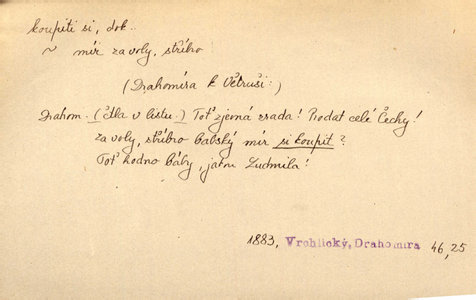 koupiti si, dok..
~ mír za voly, stříbro
(Drahomíra k Větruši:)
Drahom. (Čtla v listu.) Toť zjevná zrada! Prodat celé Čechy!
za voly, stříbro babský mír si koupit?
Toť hodno báby, jakou Ludmila!
1883, Vrchlický, Drahomíra 46, 25